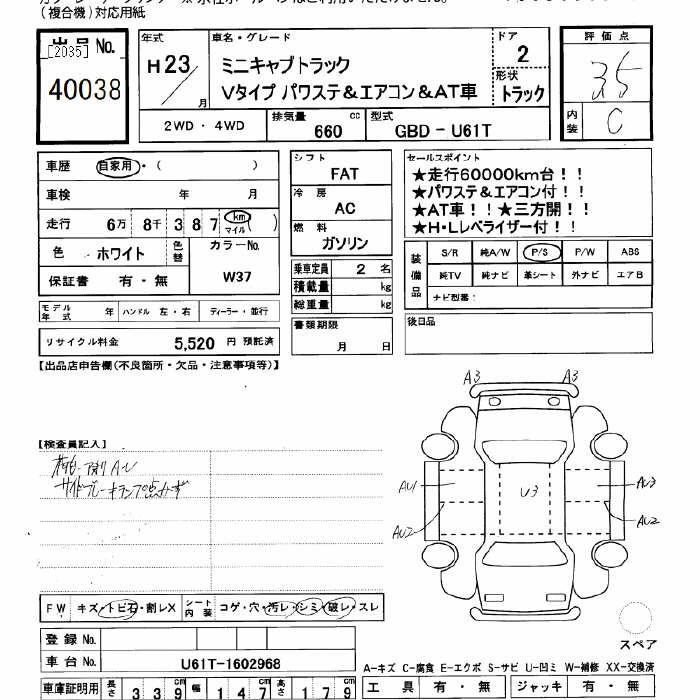 (複合機)対応用紙
出品 No.
[2035]
40038
年式
H 23 / 月
車名・グレード
ミニキャブトラック
Vタイプ パワステ&エアコン&AT車
ドア
2
形状
トラック
2WD ・ 4WD
排気量 660 cc
型式 GBD - U61T
評価点
3.5
内装
C
車歴 自家用・( )
車検 年 月
走行 6万 8千 3 8 7 km マイル ( )
色 ホワイト 色替
カラーNo.
W37
保証書 有・無
モデル年式 年 ハンドル 左・右 ディーラー・並行
リサイクル料金 5,520 円 預託済
シフト
FAT
冷房
AC
燃料
ガソリン
乗車定員 2 名
積載量 kg
総重量 kg
書類期限
月 日
セールスポイント
★走行60000km台!!
★パワステ&エアコン付!!
★AT車!!★三方開!!
★H・Lレベライザー付!!
装備品
S/R 純A/W P/S P/W ABS
純TV 純ナビ 革シート 外ナビ エアB
ナビ型番:
後日品
【出品店申告欄(不良箇所・欠品・注意事項等)】
【検査員記入】
サイドブレーキランプ点かず
A3 A3
AU1 U3 AU3
AU2 AU2
スペア
FW キズ・トビ石・割レX
シート内装 コゲ・穴・汚レ・シミ・破レ・スレ
登録 No.
車台 No. U61T-1602968
車庫証明用 長さ 3 3 9 cm 幅 1 4 7 cm 高さ 1 7 9 cm
A-キズ C-腐食 E-エクボ S-サビ U-凹ミ W-補修 XX-交換済
工具 有・無 ジャッキ 有・無